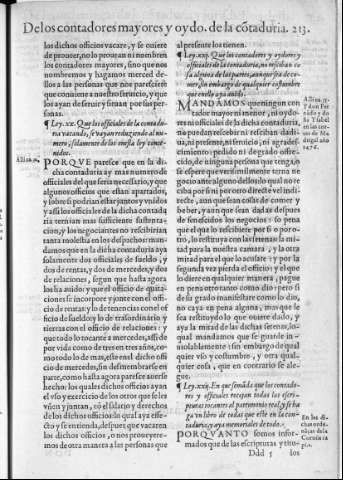 De los contadores mayores y oydo. de la cōtaduria. 213.
los dichos officios vacare, y se ouiere
de proueer, no lo prouean ni nombren
los contadores mayores, sino que nos
nombremos y hagamos merced de-
llos a las personas que nos paresciere
que conuiene a nuestro seruicio, y que
los ayan de seruir y siruan por sus per-
sonas.
¶ Ley .xx. Que los officiales de la contadu-
ria vacando, se vayan reduziendo al nu-
mero solamente de los en esta ley conte-
nidos.
PORQVE paresce que en la di-
cha contaduria ay mas numero de
officiales del que seria necessario, y que
algunos officios que estan apartados,
y sobre si podrian estar juntos y vnidos
y assi los officiales de la dicha contadu
ria ternian mas sufficiente sustenta-
cion, y los negociantes no rescibirian
tanta molestia en los despachos: man-
damos que en la dicha contaduria aya
solamente dos officiales de sueldo, y
dos de rentas, y dos de mercedes, y dos
de relaciones, segun que hasta agora
los ha auido: y que el officio de quita-
ciones se incorpore y junte con el offi-
cio de rentas y lo de tenencias con el of
ficio de sueldo: y lo de extraordinario y
tierras con el officio de relaciones: y
que todo lo tocante a mercedes, assi de
por vida como de veynte en tres años, co-
mo todo lo de mas, este en al dicho offi
cio de mercedes, sin desmembrarse en
parte, como hasta agora paresce auerse
hecho: los quales dichos officios ayan
el vso y exercicio de los otros que se les
vnen y juntan, cō el salario y derechos
de los dichos officios: lo qual aya effe-
cto y se entienda, despues que vacaren
los dichos officios, o nos proueyere-
mos de otra manera a las personas que
al presente los tienen.
¶ Ley .xxj. Que los contadores y oydores y
officiales de la contaduria, no resciban co-
sa alguna de las partes, aunque sea de co-
mer, sin embargo de qualquier costumbre
que cerca dello aya auido.
MANDAMOS que ningun con
tador mayor ni menor, ni oydo-
res ni officiales de la dicha contaduria,
no puedan rescebir ni resciban dadi-
uas, ni presente, ni seruicio, ni agrade-
cimiento: pedido ni de grado offre-
cido, de ninguna persona que tenga, o
se espere que verisimilmente terna ne
gocio ante alguno dellos: lo qual no re
ciba por si ni por otro directe vel indi-
recte, aun que sean cosas de comer y
beber, y aun que sean dadas despues
de fenescidos los negocios: so pena
que el que lo rescibiere por si o por o-
tro, lo restituya con las setenas: la mi-
tad para la nuestra camara, y la otra
mitad para el que lo acusare: y por la
segunda vez pierda el officio: y el que
lo diere en qualquier manera, pague
en pena otro tanto como dio: pero si
de su grado manifestare como lo dio,
no caya en pena alguna, mas que le
sea restituydo lo que ouiere dado, y
aya la mitad de las dichas setenas, lo-
qual mandamos que se guarde in-
uiolablemente: sin embargo de qual
quier vso y costumbre, y otra qual-
quier cosa, que en contrario se ale-
gue.
¶ Ley .xxij. En que se manda que los contado-
res y officiales recojan todas las escri-
pturas tocantes al patrimonio real, y se ha
ga vn libro de todas que este en la con-
taduria, y aya memoriales de todo.
PORQVANTO somos infor-
mados que de las escripturas y titu-
Ddd 5 los
En las di-
chas orde-
nãças de la
Coruña ca
pi.